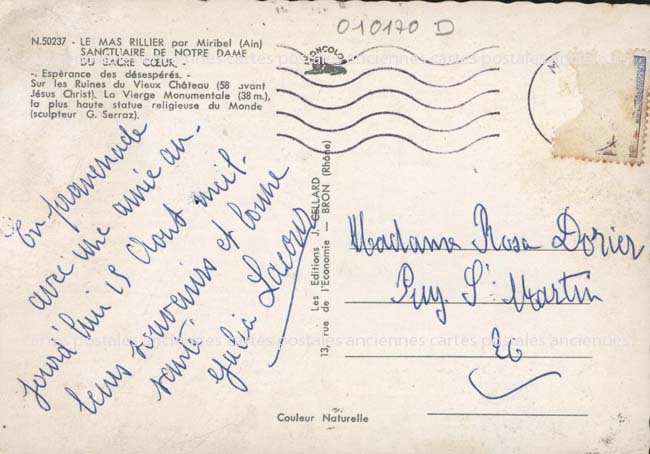 010170 D
N.50237 - LE MAS RILLIER par Miribel (Ain)
SANCTUAIRE DE NOTRE DAME
DU SACRE CŒUR,
-. Espérance des désespérés. -
Sur les Ruines du Vieux Château (58 avant
Jésus Christ). La Vierge Monumentale (38 m.),
la plus haute statue religieuse du Monde
(sculpteur G. Serraz).
cartes postales anciennes cartes postales anciennes
En promenade
avec une amie au-
jourd'hui 15 Aout meil-
leurs souvenirs et bonne
santé
Julia
13, rue de l'Economie — BRON (Rhône)
Les Editions J. CELLARD
Madame Rosa Dorier
Puy St Martin
26
cartes postales anciennes cartes postales anciennes
Couleur Naturelle